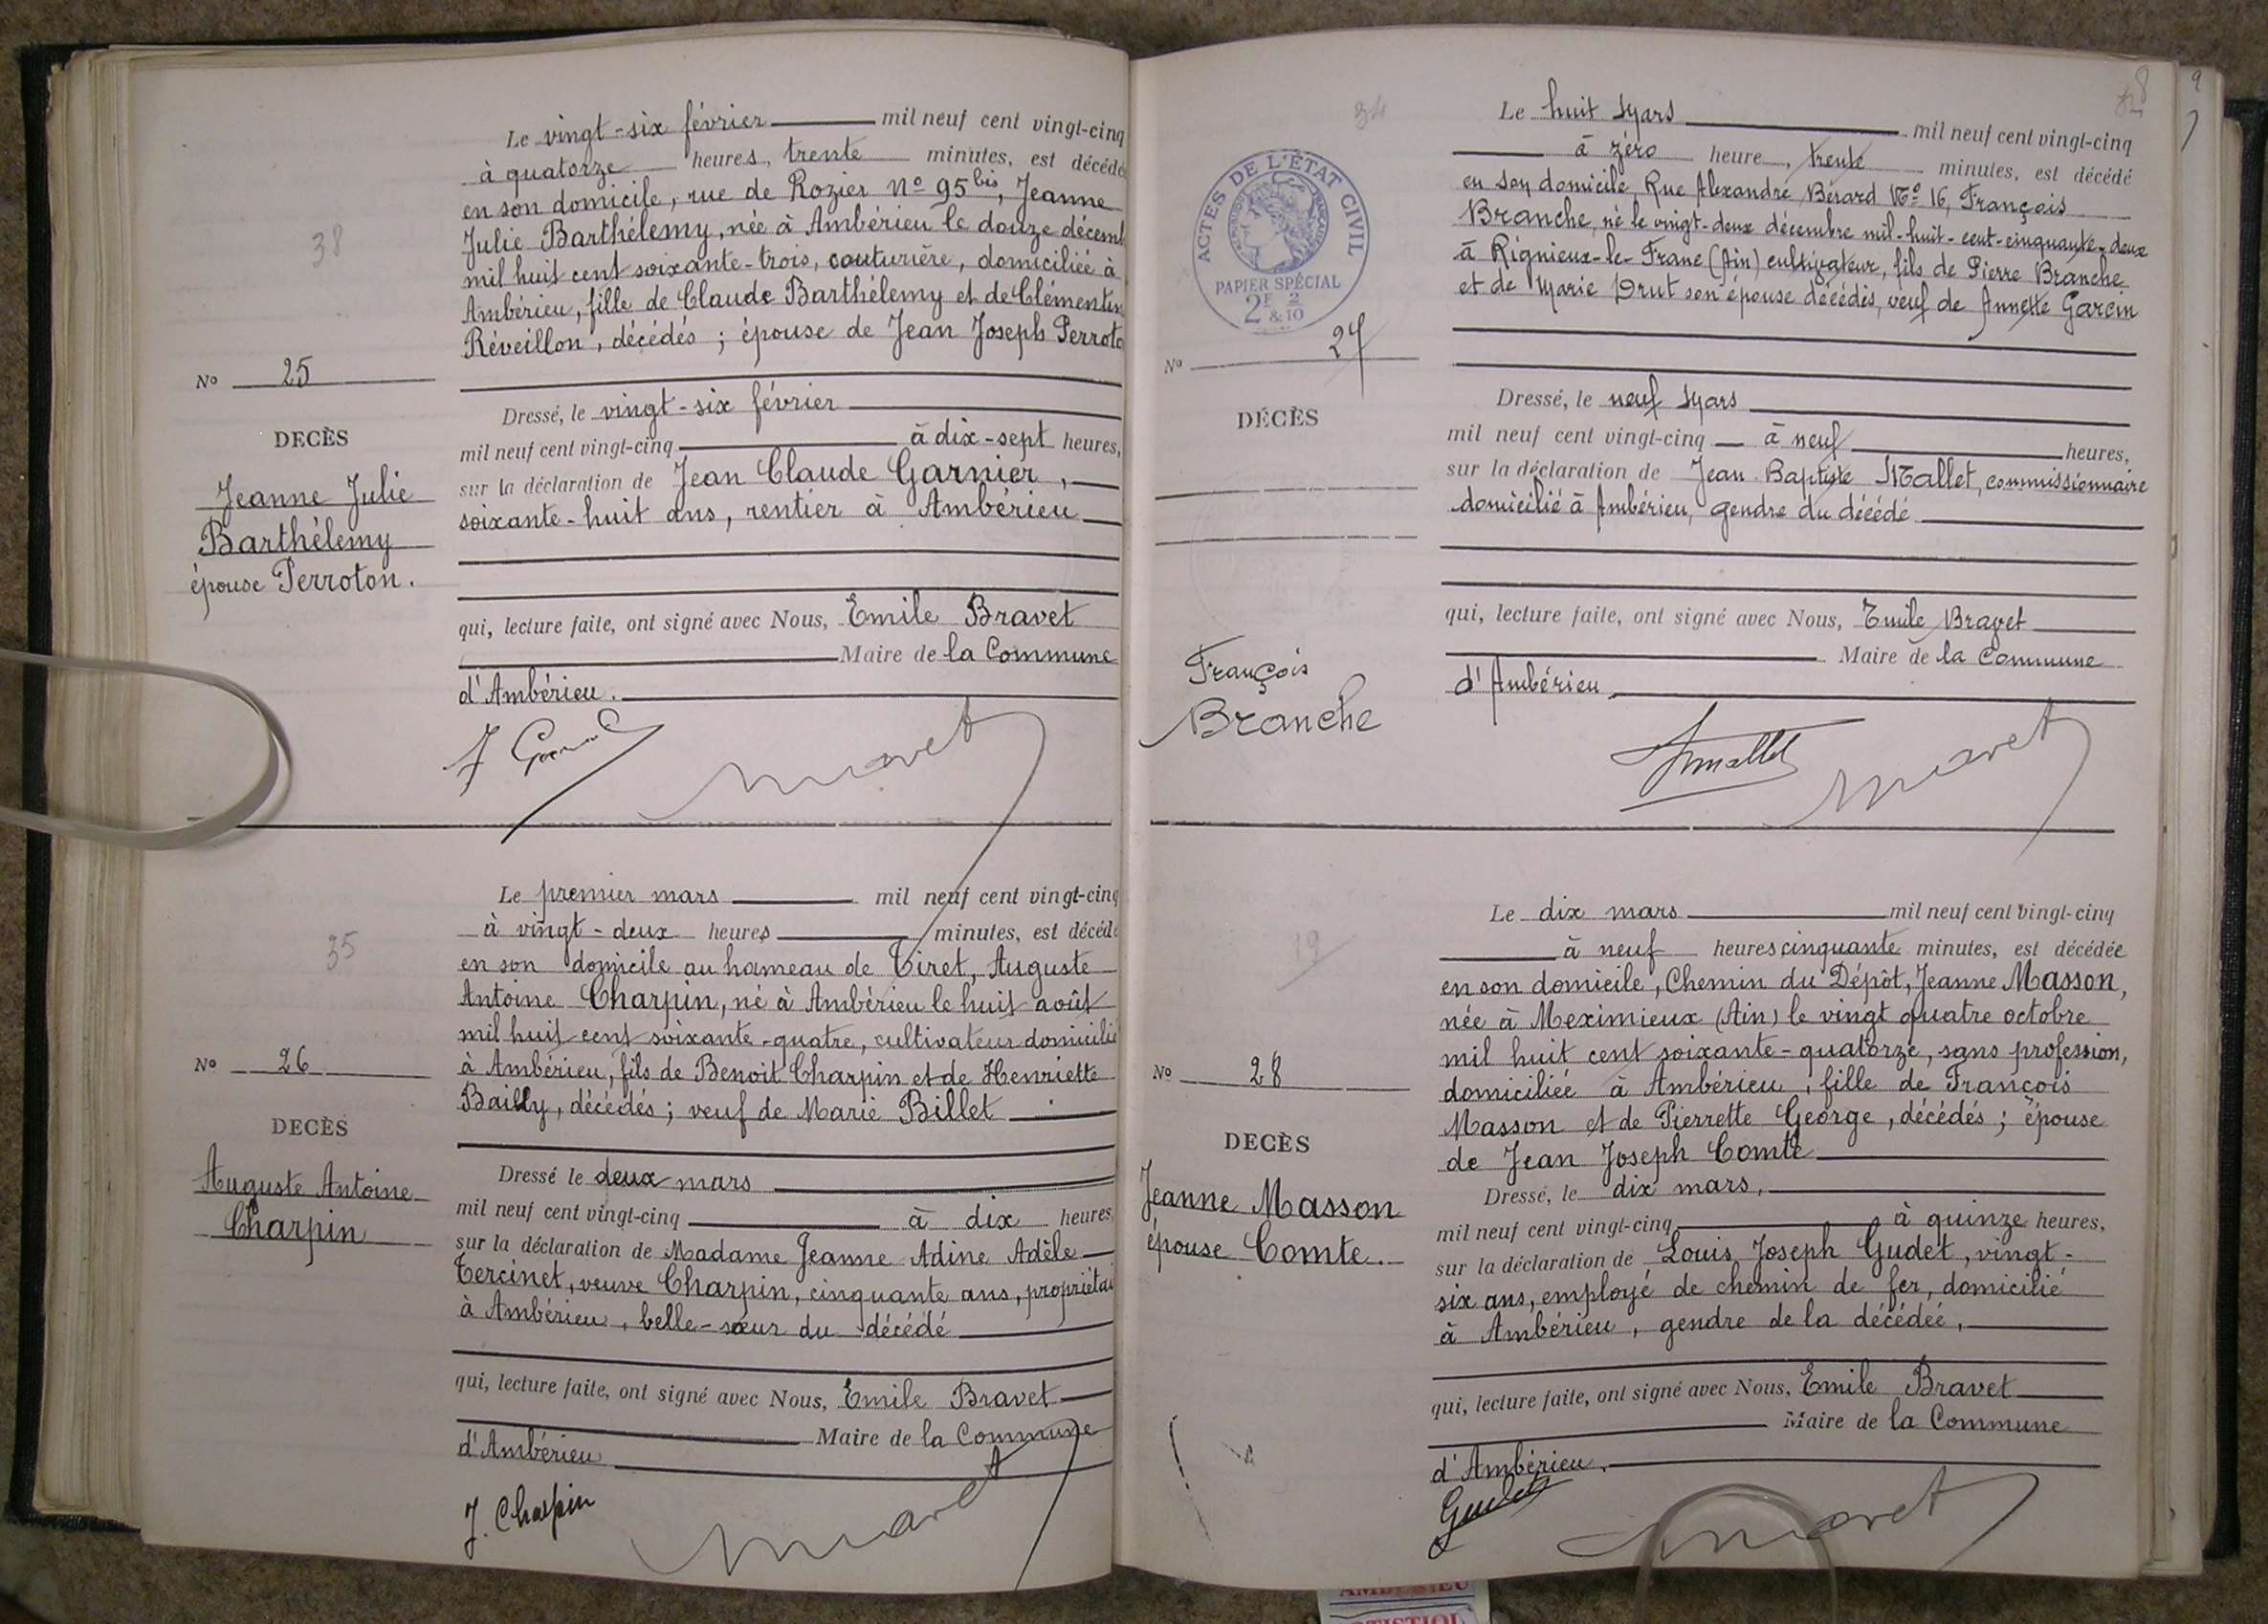 38
Le vingt-six février mil neuf cent vingt-cinq
à quatorze heures, trente minutes, est décédé
en son domicile, rue de Rozier No 95 bis, Jeanne
Julie Barthélemy, née à Ambérieu le douze décemb
mil huit cent soixante-trois, couturière, domiciliée à
Ambérieu, fille de Claude Barthélemy et de Clémentin
Réveillon, décédés ; épouse de Jean Joseph Perroto
No 25
DECÈS
Jeanne Julie
Barthélemy
épouse Perroton.
Dressé, le vingt-six février
mil neuf cent vingt-cinq à dix-sept heures,
sur la déclaration de Jean Claude Garnier,
soixante-huit ans, rentier à Ambérieu
qui, lecture faite, ont signé avec Nous, Emile Bravet
Maire de la Commune
d'Ambérieu.
35
Le premier mars mil neuf cent vingt-cinq
à vingt-deux heures minutes, est décédé
en son domicile au hameau de Tiret, Auguste
Antoine Charpin, né à Ambérieu le huit août
mil huit cent soixante-quatre, cultivateur domicilié
à Ambérieu, fils de Benoit Charpin et de Henriette
Bailly, décédés ; veuf de Marie Billet
No 26
DECÈS
Auguste Antoine
Charpin
Dressé le deux mars
mil neuf cent vingt-cinq à dix heures,
sur la déclaration de Madame Jeanne Adine Adèle
Tercinet, veuve Charpin, cinquante ans, propriétai
à Ambérieu, belle-sœur du décédé
qui, lecture faite, ont signé avec Nous, Emile Bravet
Maire de la Commune
d'Ambérieu
J. Charpin
34
8
9
ACTES DE L'ÉTAT CIVIL
PAPIER SPÉCIAL
2F & 2/10
Le huit Mars mil neuf cent vingt-cinq
à zéro heure, trente minutes, est décédé
en son domicile, Rue Alexandre Bérard No 16, François
Branche, né le vingt-deux décembre mil-huit-cent-cinquante-deux
à Rignieux-le-Franc (Ain) cultivateur, fils de Pierre Branche
et de Marie Drut son épouse décédés, veuf de Annette Garcin
No 27
DÉCÈS
François
Branche
Dressé, le neuf Mars
mil neuf cent vingt-cinq à neuf heures,
sur la déclaration de Jean-Baptiste Mallet, commissionnaire
domicilié à Ambérieu, gendre du décédé
qui, lecture faite, ont signé avec Nous, Emile Bravet
Maire de la Commune
d'Ambérieu
19
Le dix mars mil neuf cent vingt-cinq
à neuf heures cinquante minutes, est décédée
en son domicile, Chemin du Dépôt, Jeanne Masson,
née à Meximieux (Ain) le vingt quatre octobre
mil huit cent soixante-quatorze, sans profession,
domiciliée à Ambérieu, fille de François
Masson et de Pierrette George, décédés ; épouse
de Jean Joseph Comte
No 28
DECÈS
Jeanne Masson
épouse Comte.
Dressé, le dix mars,
mil neuf cent vingt-cinq à quinze heures,
sur la déclaration de Louis Joseph Gudet, vingt-
six ans, employé de chemin de fer, domicilié
à Ambérieu, gendre de la décédée,
qui, lecture faite, ont signé avec Nous, Emile Bravet
Maire de la Commune
d'Ambérieu.
Gudet